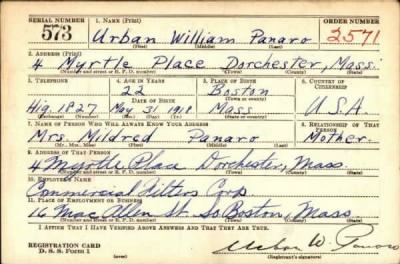 SERIAL NUMBER 1. NAME (Print) ORDER NUMBER
573 Urban William Panaro 2571
(First) (Middle) (Last)
2. ADDRESS (Print)
4 Myrtle Place Dorchester, Mass.
(Number and street or R. F. D. number) (Town) (County) (State)
3. TELEPHONE 4. AGE IN YEARS 5. PLACE OF BIRTH 6. COUNTRY OF CITIZENSHIP
22 Boston
DATE OF BIRTH (Town or county)
Hig. 1827 May 31 1918 Mass U.S.A.
(Exchange) (No.) (Mo.) (Day) (Yr.) (State or country)
7. NAME OF PERSON WHO WILL ALWAYS KNOW YOUR ADDRESS 8. RELATIONSHIP OF THAT PERSON
Mrs. Mildred Panaro Mother.
(Mr., Mrs., Miss) (First) (Middle) (Last)
9. ADDRESS OF THAT PERSON
4 Myrtle Place Dorchester, Mass.
(Number and street or R. F. D. number) (Town) (County) (State)
10. EMPLOYER'S NAME
Commercial Filters Corp.
11. PLACE OF EMPLOYMENT OR BUSINESS
16 Mac Allen St. So Boston, Mass
(Number and street or R. F. D. number) (Town) (County) (State)
I AFFIRM THAT I HAVE VERIFIED ABOVE ANSWERS AND THAT THEY ARE TRUE.
REGISTRATION CARD
D. S. S. Form 1 (over) Urban W. Panaro
(Registrant's signature)